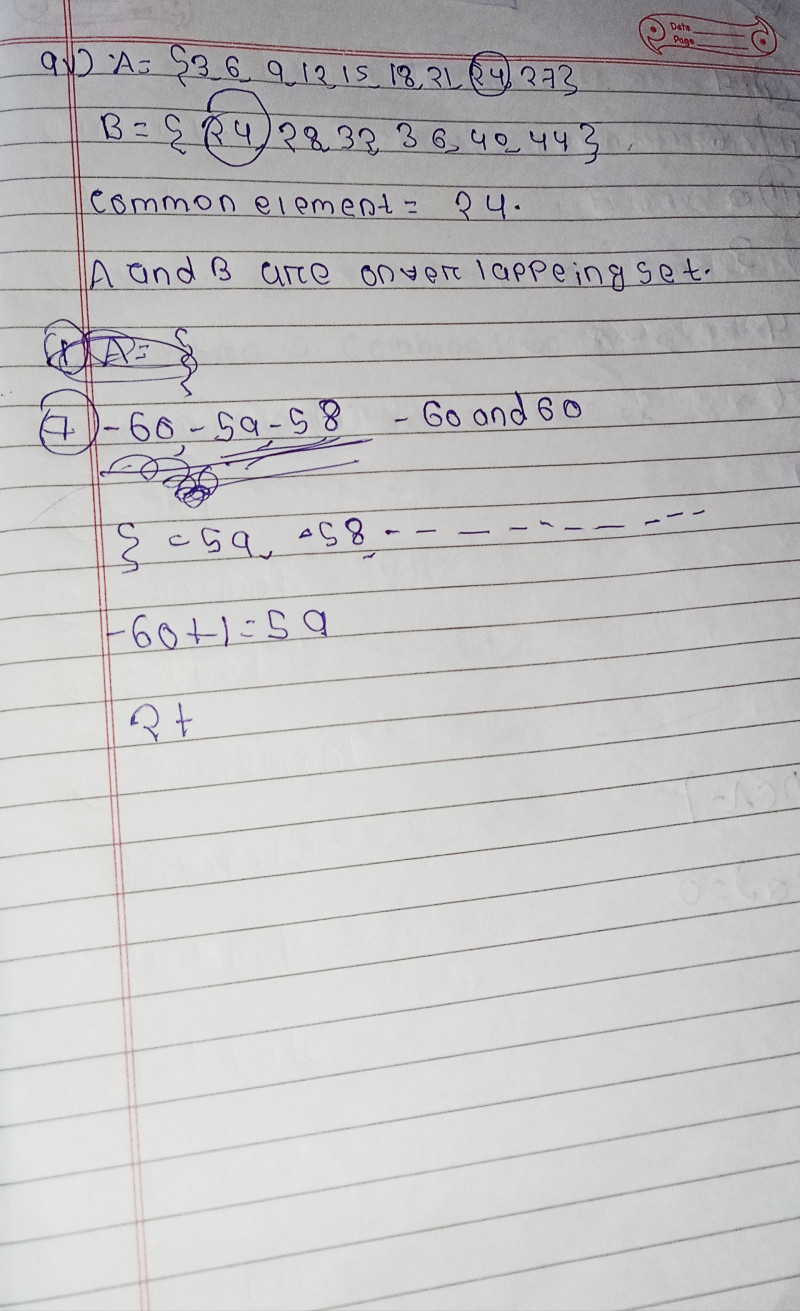 Data
Page
9v) A = {3, 6, 9, 12, 15, 18, 21, 24, 27}
B = { 24, 28, 32, 36, 40, 44}
common element = 24.
A and B are onverlappeing set.
A = {
7) -60, -59 -58 - 60 and 60
{ -59, -58 - - - - - - - - -
-60+1=59
2+